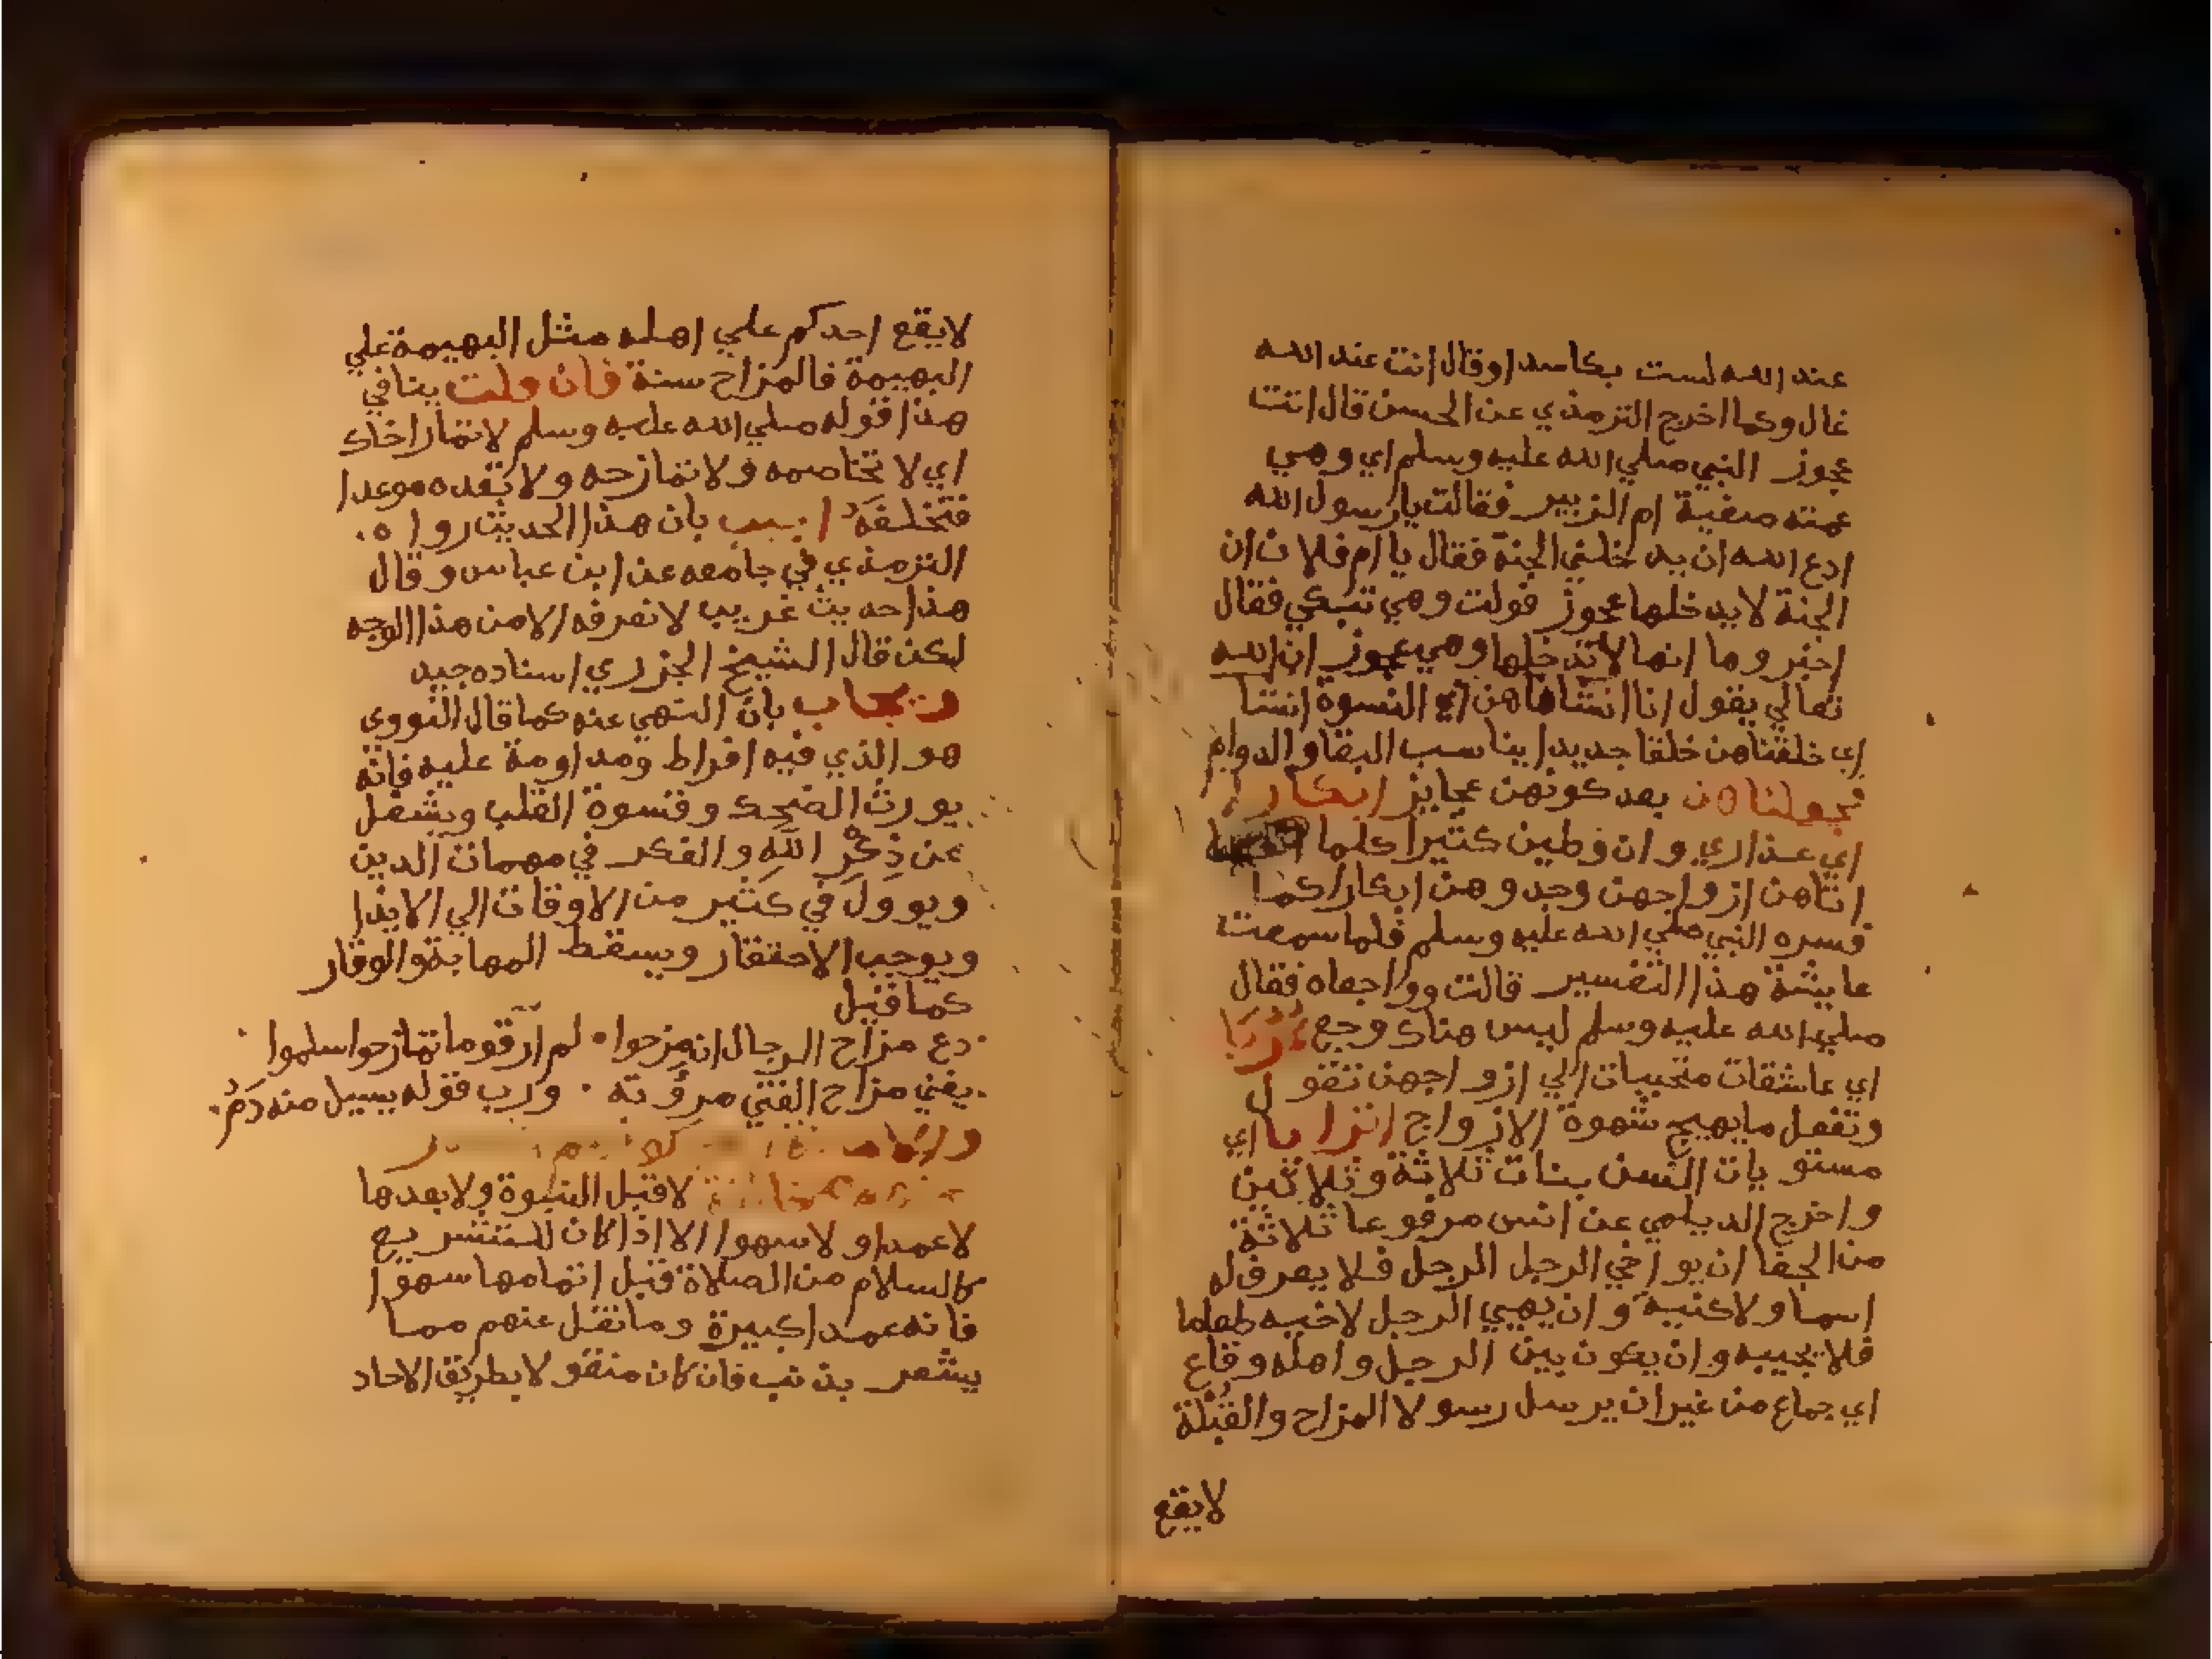 عند الله لست بكاسد او قال انت عند الله
غال وكما اخرج الترمذي عن الحسن قال اتت
عجوز النبي صلي الله عليه وسلم اي وهي
عمته صفية ام الزبير فقالت يا رسول الله
ادع الله ان يدخلني الجنة فقال يا ام فلان ان
الجنة لا يدخلها عجوز فولت وهي تبكي فقال
اخبروها انها لا تدخلها وهي عجوز ان الله
تعالي يقول انا انشاناهن اي النسوة انشا
اي خلقناهن خلقا جديدا يناسب البقا والدوام
فجعلناهن بعد كونهن عجايز ابكارا
اي عذاري وان وطين كثيرا كلما
اتاهن ازواجهن وجدوهن ابكارا كما
فسره النبي صلي الله عليه وسلم فلما سمعت
عايشة هذا التفسير قالت وواجعاه فقال
صلي الله عليه وسلم ليس هناك وجع عُرُبًا
اي عاشقات متحببات الي ازواجهن تقول
وتفعل ما يهيج شهوة الازواج اترابا اي
مستويات السن بنات ثلاثة وثلاثين
واخرج الديلمي عن انس مرفوعا ثلاثة
من الجفا ان يواخي الرجل الرجل فلا يعرف له
اسما ولا كنية وان يهيي الرجل لاخيه طعاما
فلا يجيبه وان يكون بين الرجل واهله وقاع
اي جماع من غير ان يرسل رسولا المزاح والقُبْلة
لا يقع
لا يقع احدكم علي اهله مثل البهيمة علي
البهيمة فالمزاح سنة فان قلت ينافي
هذا قوله صلي الله عليه وسلم لا تمار اخاك
اي لا تخاصمه ولا تمازحه ولا تعده موعدا
فتخلفه اجيب بان هذا الحديث رواه
الترمذي في جامعه عن ابن عباس وقال
هذا حديث غريب لا نعرفه الا من هذا الوجه
لكن قال الشيخ الجزري اسناده جيد
ويجاب بان النهي عنه كما قال النووي
هو الذي فيه افراط ومداومة عليه فانه
يورث الضحك وقسوة القلب ويشغل
عن ذِكْرِ اللهِ والفكر في مهمات الدين
ويوول في كثير من الاوقات الي الايذا
ويوجب الاحتقار ويسقط المهابة والوقار
كما قيل
دع مزاح الرجال ان مزحوا · لم ار قوما تمازحوا سلموا
يفني مزاح الفتي مروته · ورب قوله يسيل منه دم
لا قبل النبوة ولا بعدها
لا عمدا ولا سهوا الا اذا كان للتشريع
كالسلام من الصلاة قبل اتمامها سهوا
فانه عمدا كبيرة وما نقل عنهم مما
يشعر بذنب فان كان منقولا بطريق الاحاد